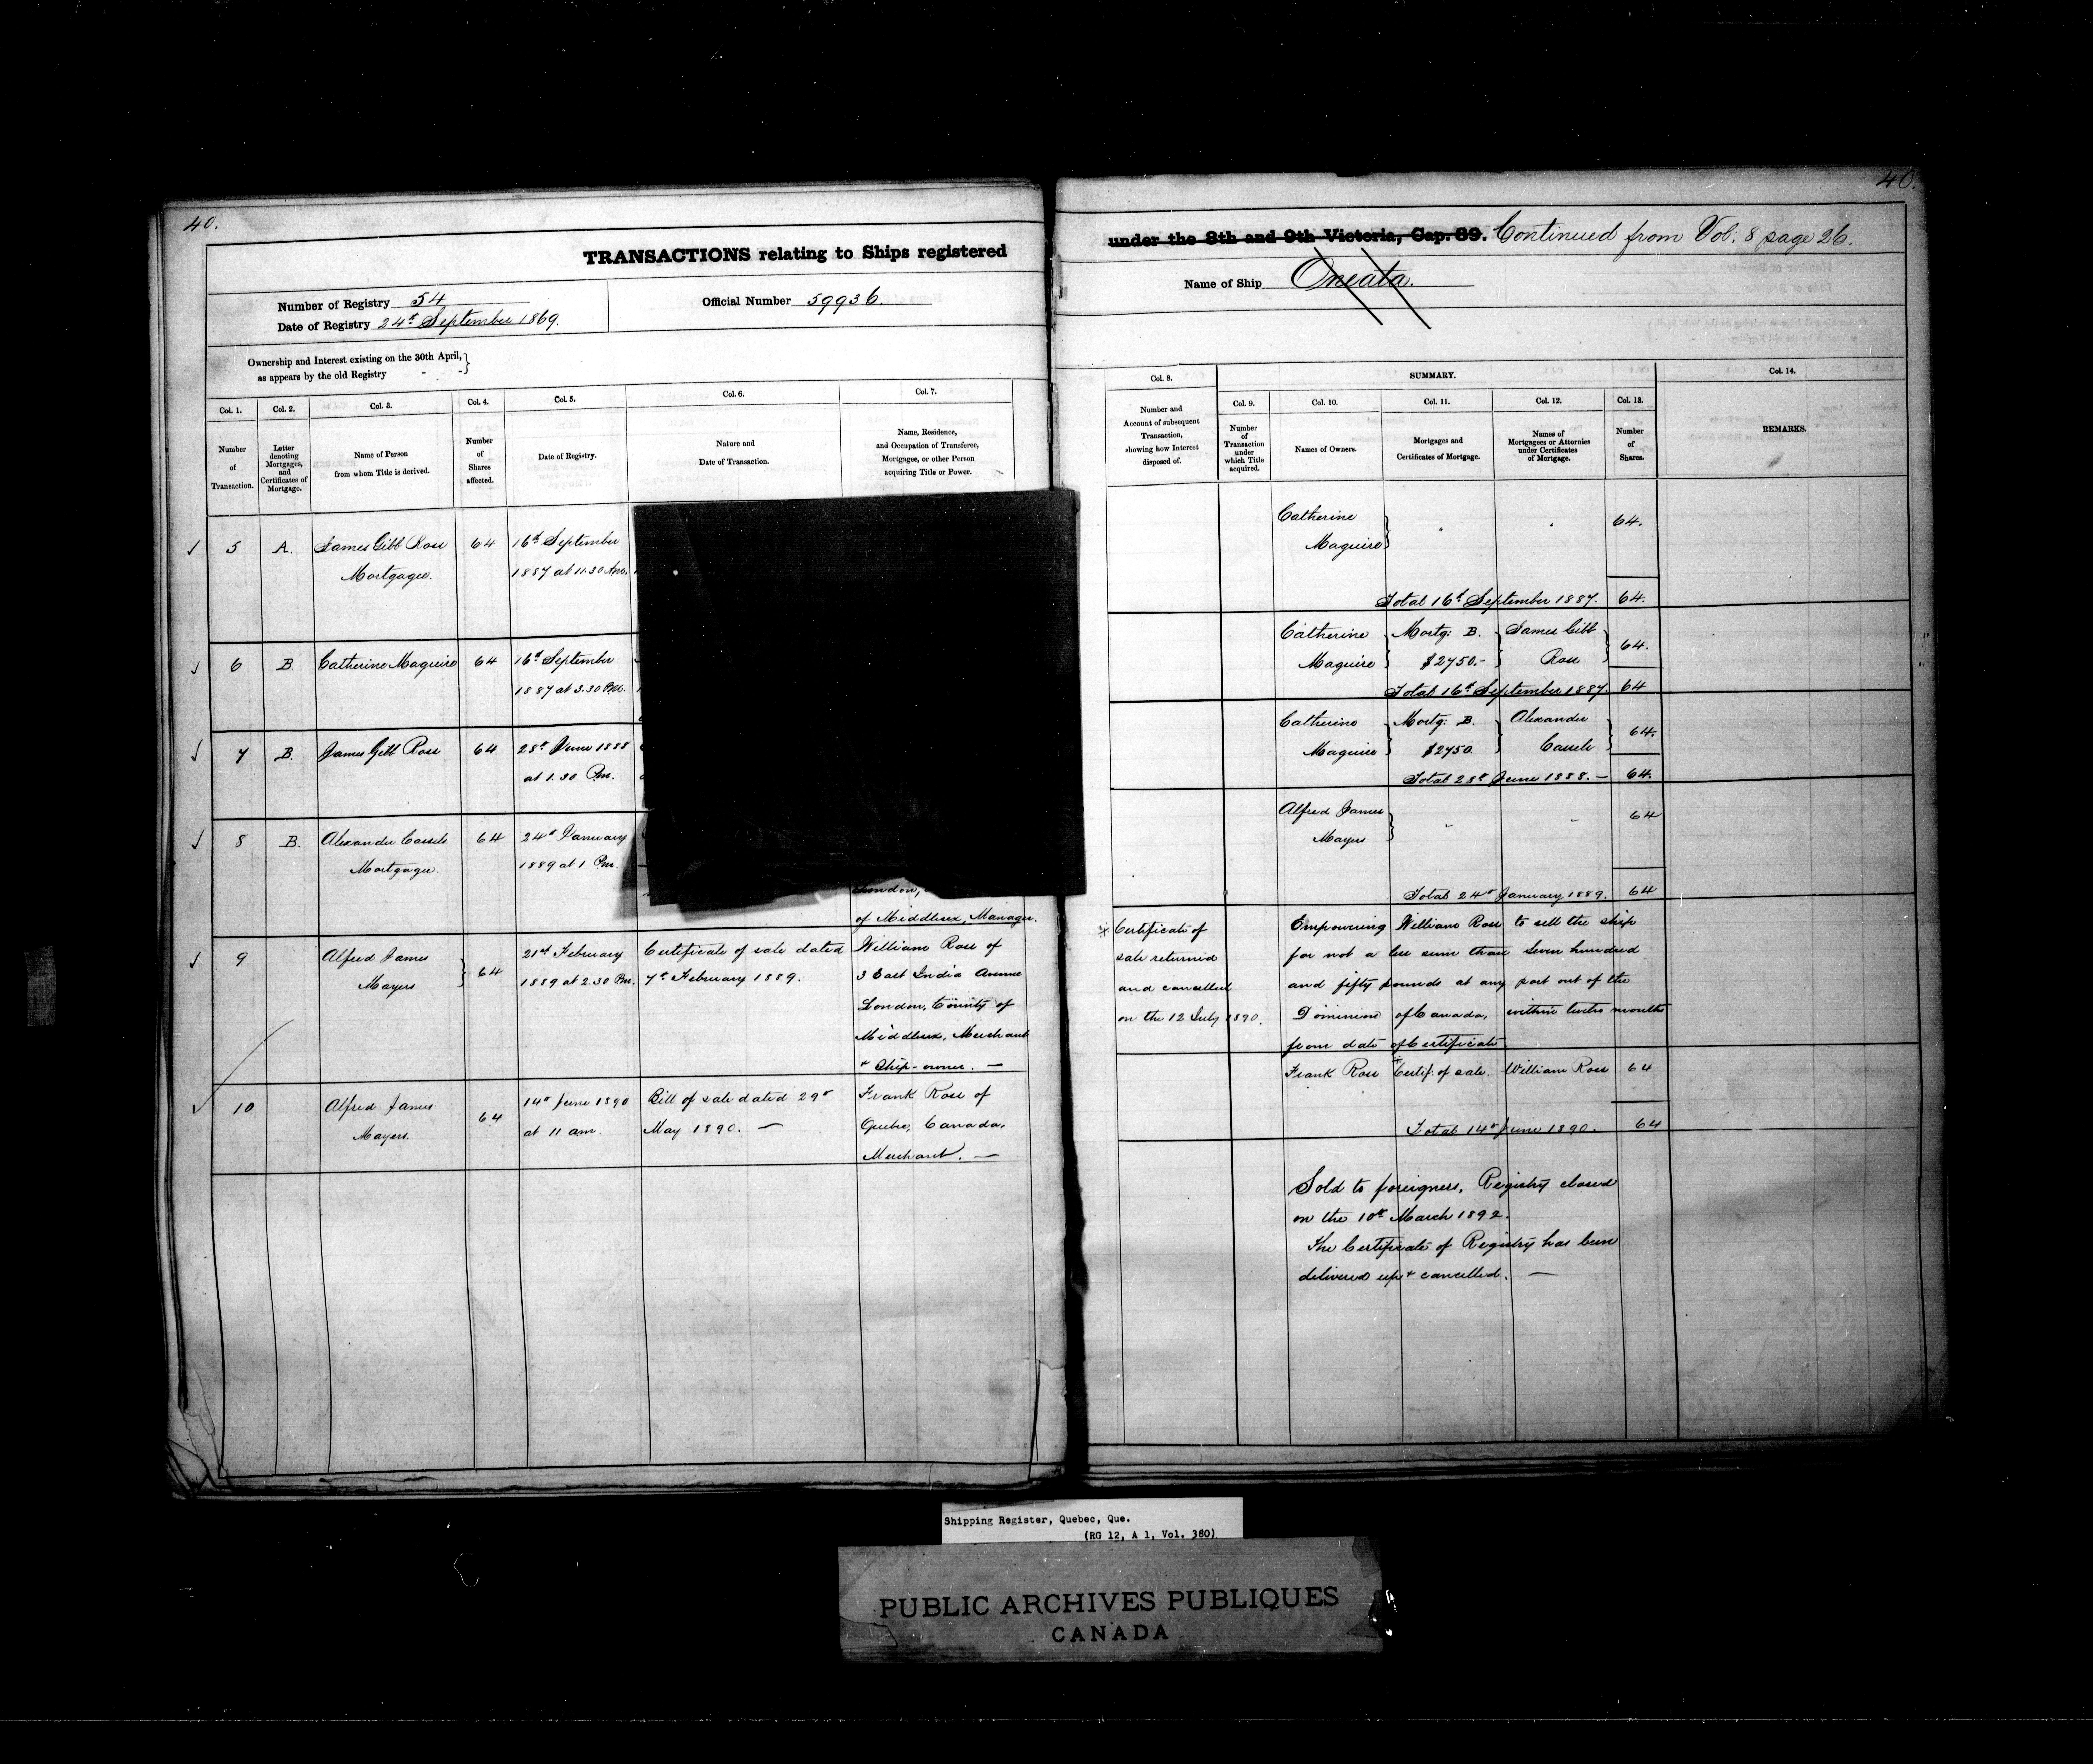 40.
TRANSACTIONS relating to Ships registered
Number of Registry 54
Date of Registry 24th September 1869.
Official Number 59936.
Ownership and Interest existing on the 30th April,
as appears by the old Registry
Col. 1. Col. 2. Col. 3. Col. 4. Col. 5. Col. 6. Col. 7.
Number
of
Transaction.
Letter
denoting
Mortgages,
and
Certificates of
Mortgage.
Name of Person
from whom Title is derived.
Number
of
Shares
affected.
Date of Registry.
Nature and
Date of Transaction.
Name, Residence,
and Occupation of Transferee,
Mortgagee, or other Person
acquiring Title or Power.
5 A. James Gibb Ross 64 16th September
Mortgagee. 1887 at 11.30 Am.
6 B. Catherine Maguire 64 16th September
1887 at 3.30 Pm.
7 B. James Gibb Ross 64 28th June 1888
at 1.30 Pm.
8 B. Alexander Cassels 64 24th January
Mortgagee 1889 at 1 Pm.
London,
of Middlesex, Manager.
9 Alfred James
Mayers 64
21st February
1889 at 2.30 Pm.
Certificate of sale dated
7th February 1889.
William Ross of
3 East India Avenue
London, County of
Middlesex, Merchant
+ Ship-owner. —
10 Alfred James
Mayers. 64
14th June 1890
at 11 am.
Bill of sale dated 29th
May 1890. —
Frank Ross of
Quebec, Canada,
Merchant. —
40.
under the 8th and 9th Victoria, Cap. 89. Continued from Vol: 8 page 26.
Name of Ship Oneata.
Col. 8. SUMMARY. Col. 14.
Col. 9. Col. 10. Col. 11. Col. 12. Col. 13.
Number and
Account of subsequent
Transaction,
showing how Interest
disposed of.
Number
of
Transaction
under
which Title
acquired.
Names of Owners.
Mortgages and
Certificates of Mortgage.
Names of
Mortgagees or Attornies
under Certificates
of Mortgage.
Number
of
Shares.
REMARKS.
Catherine
Maguire 64.
Total 16th September 1887. 64.
Catherine Mortg: B. James Gibb
Maguire $2750.- Ross 64.
Total 16th September 1887. 64
Catherine Mortg: B. Alexander
Maguire $2750. Cassels 64.
Total 28th June 1888. — 64.
Alfred James
Mayers 64
Total 24th January 1889. 64
* Certificate of
sale returned
and cancelled
on the 12 July 1890.
Empowering William Ross to sell the ship
for not a less sum than seven hundred
and fifty pounds at any port out of the
Dominion of Canada, within twelve months
from date of Certificate
Frank Ross * Certif: of sale. William Ross 64
Total 14th June 1890. 64
Sold to foreigners. Registry closed
on the 10th March 1892.
The Certificate of Registry has been
delivered up + cancelled. —
Shipping Register, Quebec, Que.
(RG 12, A 1, Vol. 380)
PUBLIC ARCHIVES PUBLIQUES
CANADA